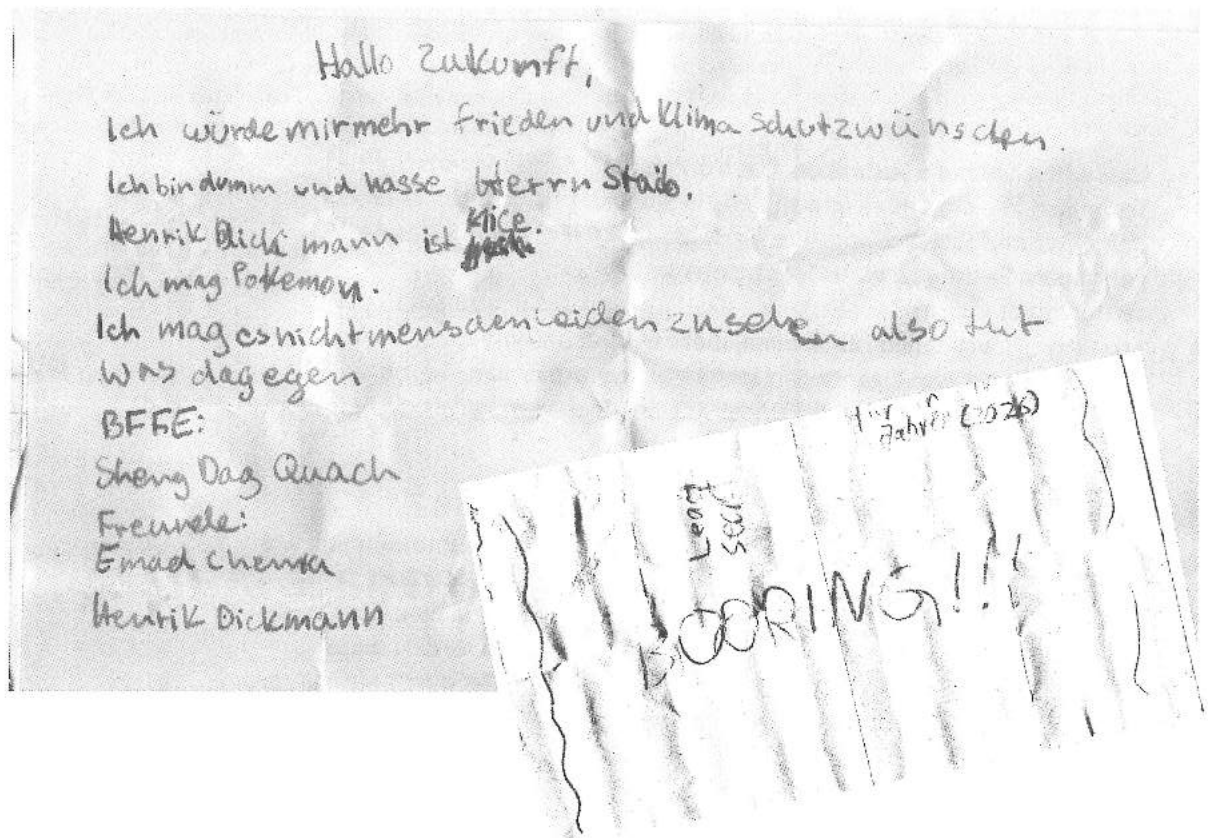 Hallo Zukunft,
Ich würde mir mehr Frieden und Klima Schutz wünschen.
Ich bin dumm und hasse Herrn Staib.
Henrik Dickmann ist
Ich mag Pokemon.
Ich mag es nicht mensden leiden zu sehen also tut
was dagegen
BFFE:
Sheng Dag Quach
Freunde:
Emad
Henrik Dickmann
Jahre (2026)
BOORING!!!